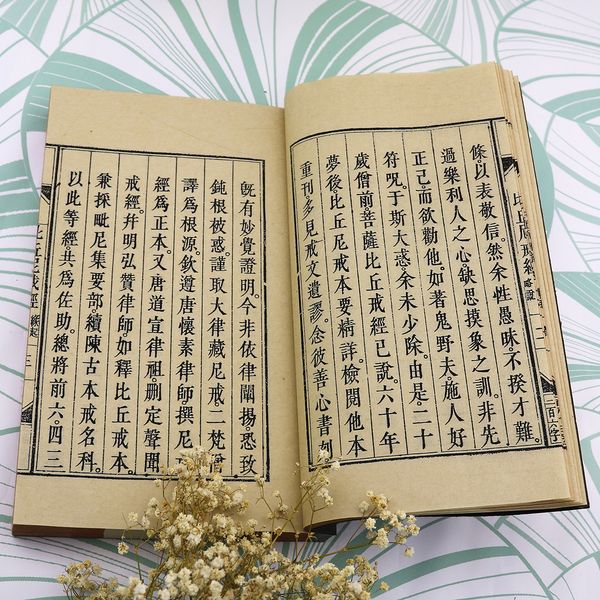 條以表敬信。然余性愚昧。不揆才難。
過樂利人之心。缺思摸象之訓。非先
正己。而欲勸他。如著鬼野夫施人好
符呪。于斯大惑。余未少除。由是二十
歲僧前菩薩比丘戒經已說。六十年
夢後比丘尼戒本要精詳。檢閱他本
重刊。多見戒文遺謬。念彼善心書刻
既有妙覺證明。今非依律闡揚。恐致
鈍根被惑。謹取大律藏尼戒二梵僧
譯爲根源。欽遵唐懷素律師撰尼
經爲正本。又唐道宣律祖。刪定聲聞
戒經。幷明弘贊律師如釋比丘戒本。
兼採毗尼集要部。續陳古本戒名科。
以此等經共爲佐助。總將前六。四三
比丘尼戒經 緣起 三